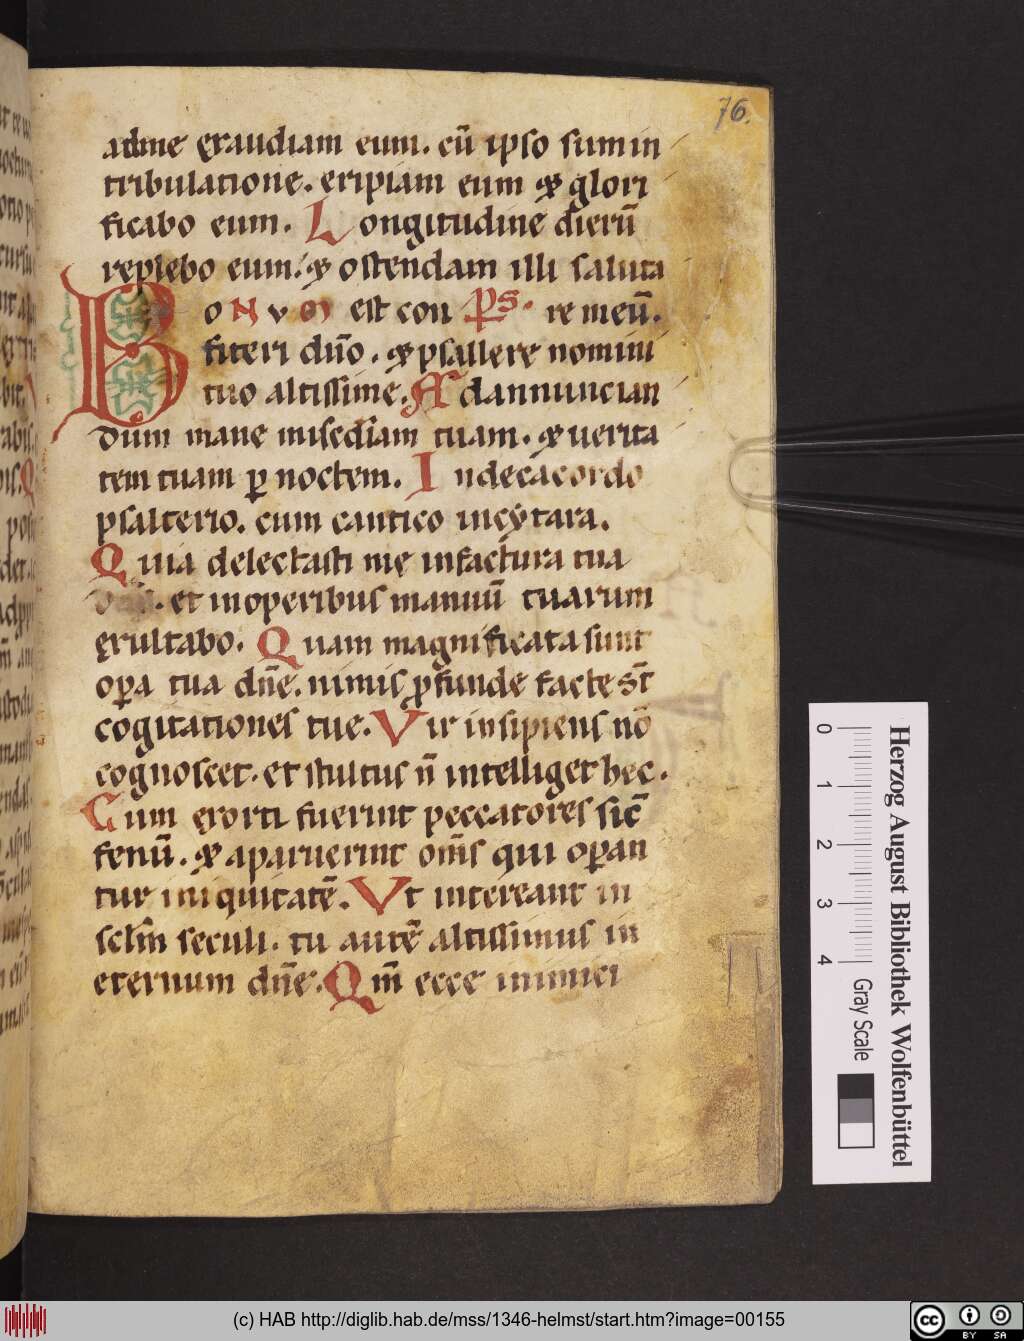 76.
adme exaudiam eum. cū ipso sum in
tribulatione. eripiam eum & glori
ficabo eum. Longitudine dierū
replebo eum. & ostendam illi saluta
oNvm est con PS. re meū.
Bfiteri dn̄o. & psallere nomini
tuo altissime. Ad annuncian
dum mane misēdiam tuam. & uerita
tem tuam p noctem. In decacordo
psalterio. cum cantico in cẏtara.
Quia delectasti me in factura tua
et in operibus manuū tuarum
exultabo. Quam magnificata sunt
opa tua dn̄e. nimis pfunde facte st̄
cogitationes tue. Vir insipiens nō
cognoscet. et stultus n̄ intelliget hec.
Cum exorti fuerint peccatores sic̄
fenū. & aparuerint om̄s qui opan
tur iniquitatē. Vt intereant in
sclm̄ seculi. tu autē altissimus in
eternum dn̄e. Qm̄ ecce inimici
Herzog August Bibliothek Wolfenbüttel
0 1 2 3 4 Gray Scale
(c) HAB http://diglib.hab.de/mss/1346-helmst/start.htm?image=00155
cc BY SA